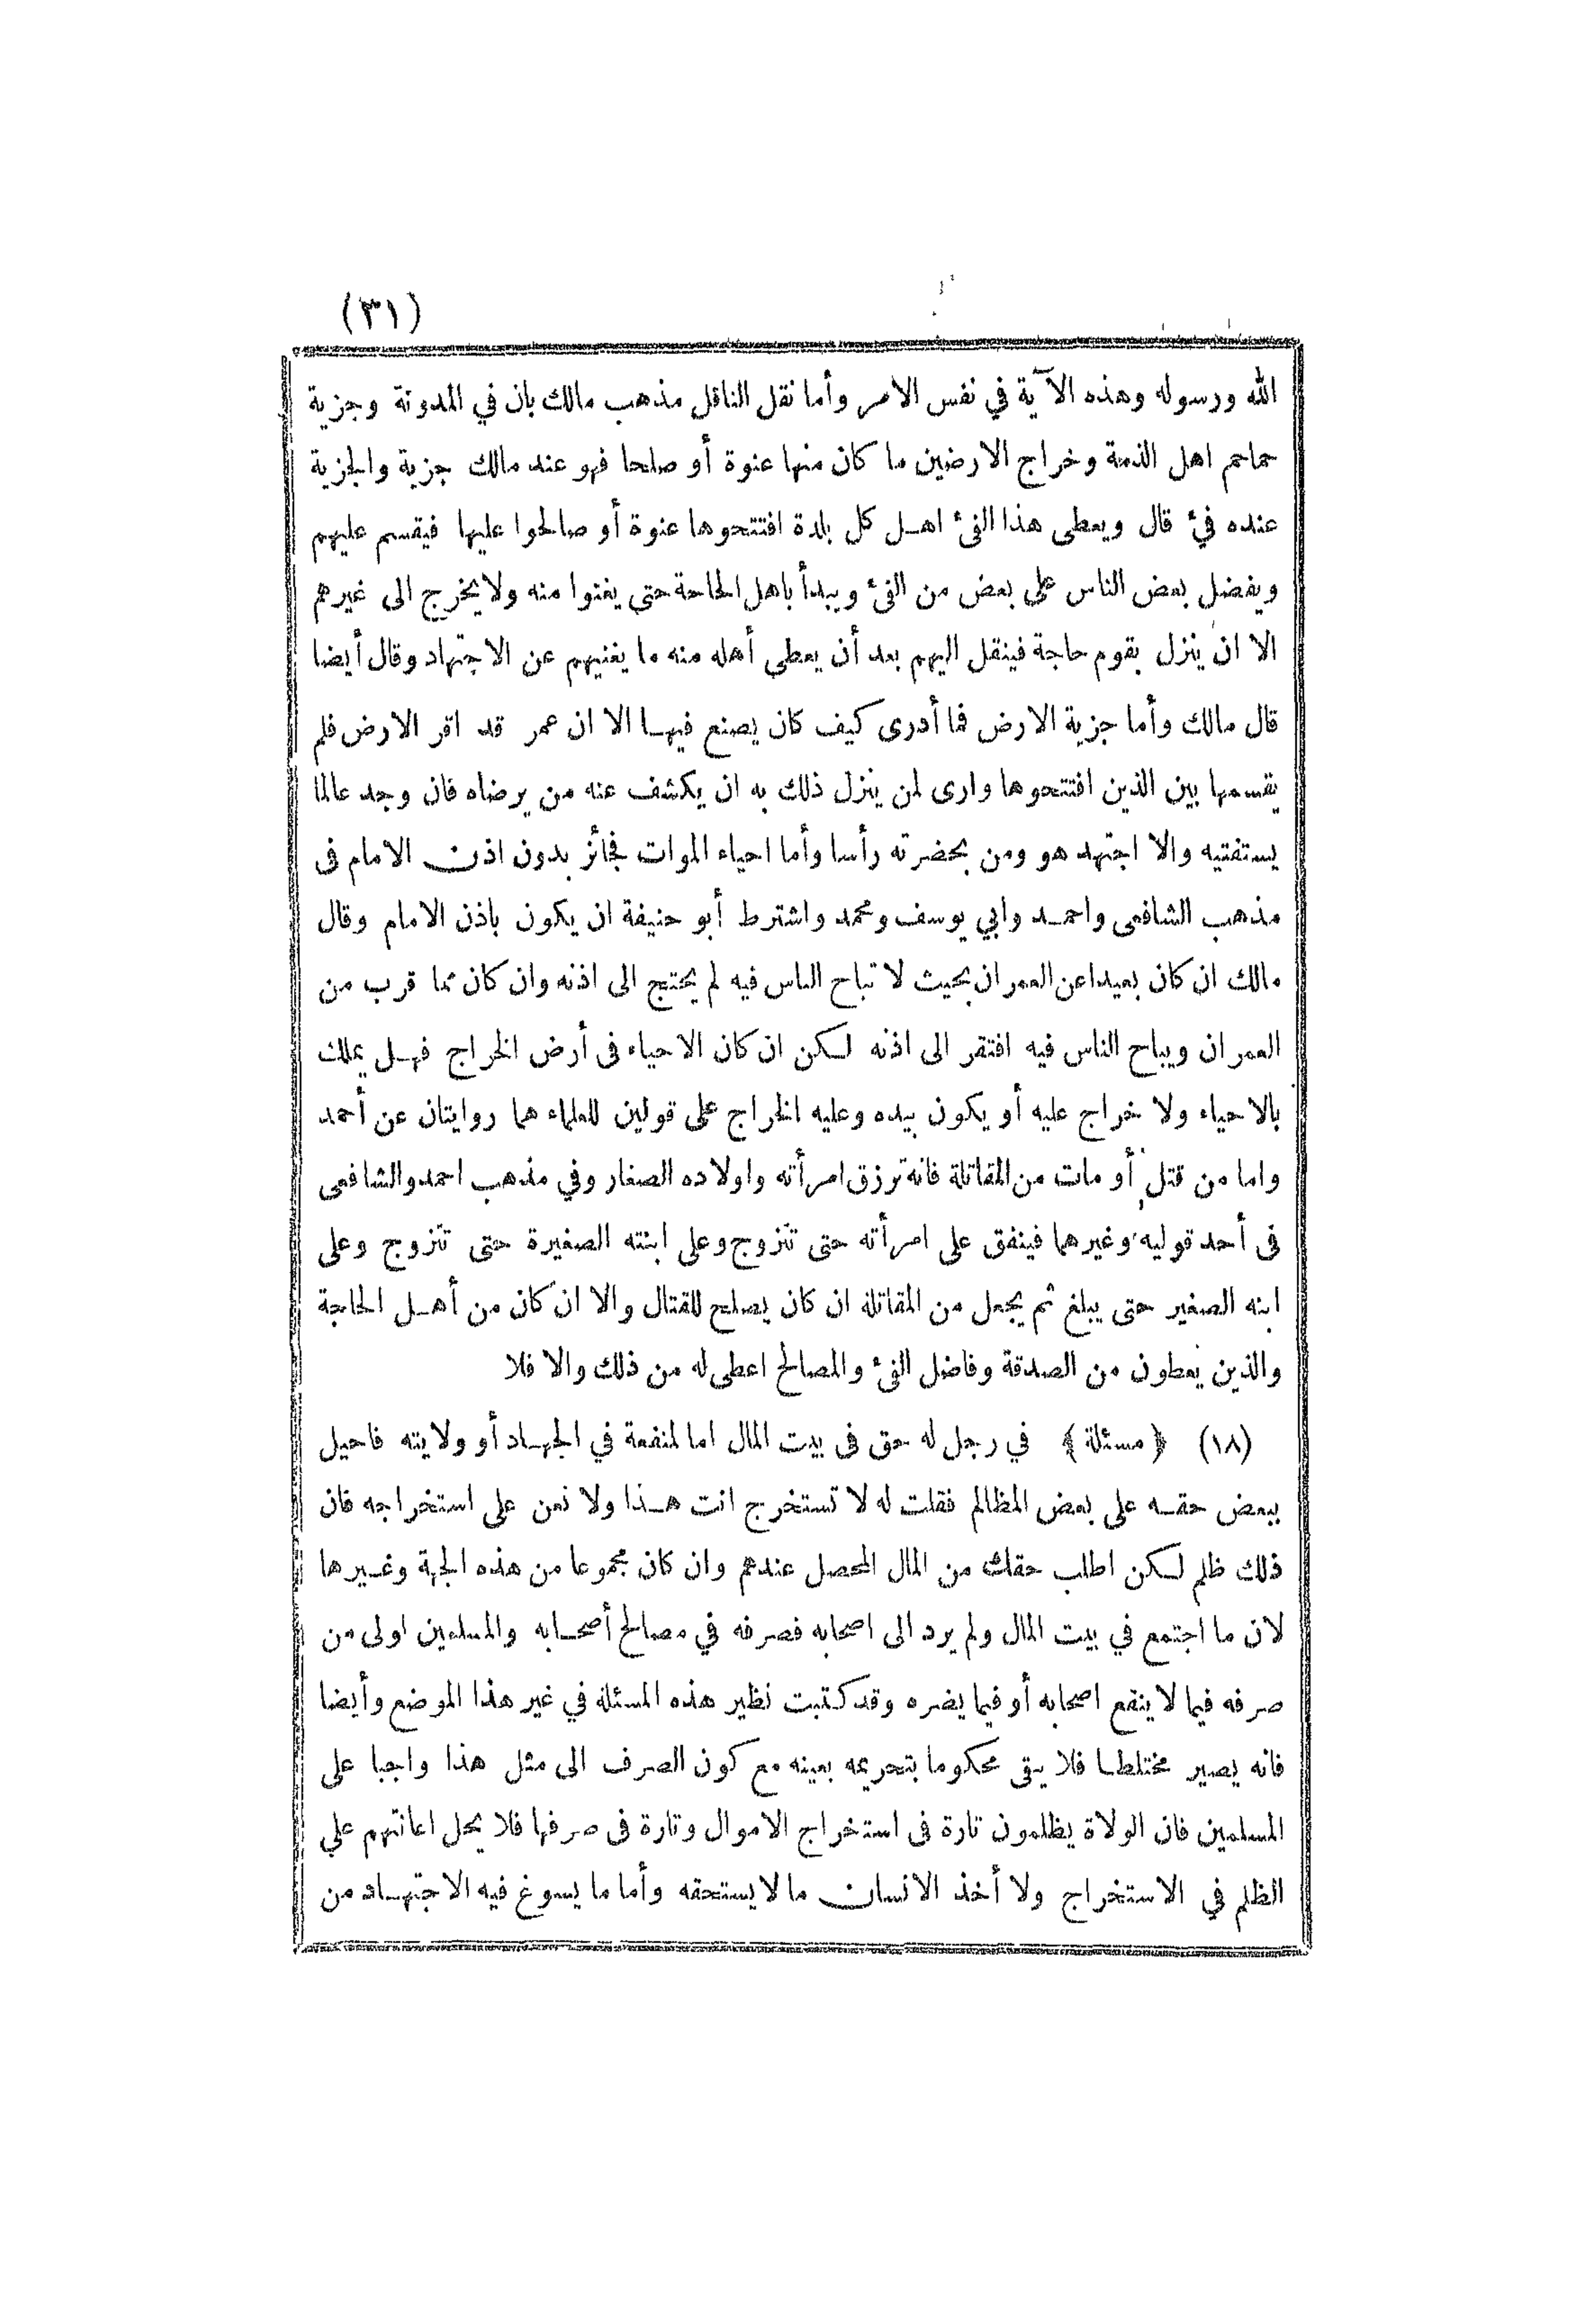 (٣١)
الله ورسوله وهذه الآية في نفس الامر وأما نقل الناقل مذهب مالك بان في المدونة وجزية
جماجم اهل الذمة وخراج الارضين ما كان منها عنوة أو صلحا فهو عند مالك جزية والجزية
عنده فيء قال ويعطى هذا الفيء اهل كل بلدة افتتحوها عنوة أو صالحوا عليها فيقسم عليهم
ويفضل بعض الناس على بعض من الفيء ويبدأ باهل الحاجة حتى يغنوا منه ولا يخرج الى غيرهم
الا ان ينزل بقوم حاجة فينقل اليهم بعد أن يعطى أهله منه ما يغنيهم عن الاجتهاد وقال أيضا
قال مالك وأما جزية الارض فما أدرى كيف كان يصنع فيها الا ان عمر قد اقر الارض فلم
يقسمها بين الذين افتتحوها وارى لمن ينزل ذلك به ان يكشف عنه من يرضاه فان وجد عالما
يستفتيه والا اجتهد هو ومن بحضرته رأسا وأما احياء الموات فجائز بدون اذن الامام فى
مذهب الشافعى واحمد وابي يوسف ومحمد واشترط أبو حنيفة ان يكون باذن الامام وقال
مالك ان كان بعيدا عن العمران بحيث لا تباح الناس فيه لم يحتج الى اذنه وان كان مما قرب من
العمران ويباح الناس فيه افتقر الى اذنه لكن ان كان الاحياء فى أرض الخراج فهل يملك
بالاحياء ولا خراج عليه أو يكون بيده وعليه الخراج على قولين للعلماء هما روايتان عن أحمد
واما من قتل أو مات من المقاتلة فانه ترزق امرأته واولاده الصغار وفي مذهب احمد والشافعى
فى أحد قوليه وغيرهما فينفق على امرأته حتى تتزوج وعلى ابنته الصغيرة حتى تتزوج وعلى
ابنه الصغير حتى يبلغ ثم يجعل من المقاتلة ان كان يصلح للقتال والا ان كان من أهل الحاجة
والذين يعطون من الصدقة وفاضل الفيء والمصالح اعطى له من ذلك والا فلا
(١٨) ﴿مسئلة﴾ في رجل له حق فى بيت المال اما لمنفعة في الجهاد أو ولايته فاحيل
ببعض حقه على بعض المظالم فقلت له لا تستخرج انت هذا ولا تعن على استخراجه فان
ذلك ظلم لكن اطلب حقك من المال المحصل عندهم وان كان مجموعا من هذه الجهة وغيرها
لان ما اجتمع في بيت المال ولم يرد الى اصحابه فصرفه في مصالح أصحابه والمسلمين اولى من
صرفه فيما لا ينفع اصحابه أو فيما يضره وقد كتبت نظير هذه المسئلة في غير هذا الموضع وأيضا
فانه يصير مختلطا فلا يبقى محكوما بتحريمه بعينه مع كون الصرف الى مثل هذا واجبا على
المسلمين فان الولاة يظلمون تارة فى استخراج الاموال وتارة فى صرفها فلا يحل اعانتهم على
الظلم في الاستخراج ولا أخذ الانسان ما لا يستحقه وأما ما يسوغ فيه الاجتهاد من